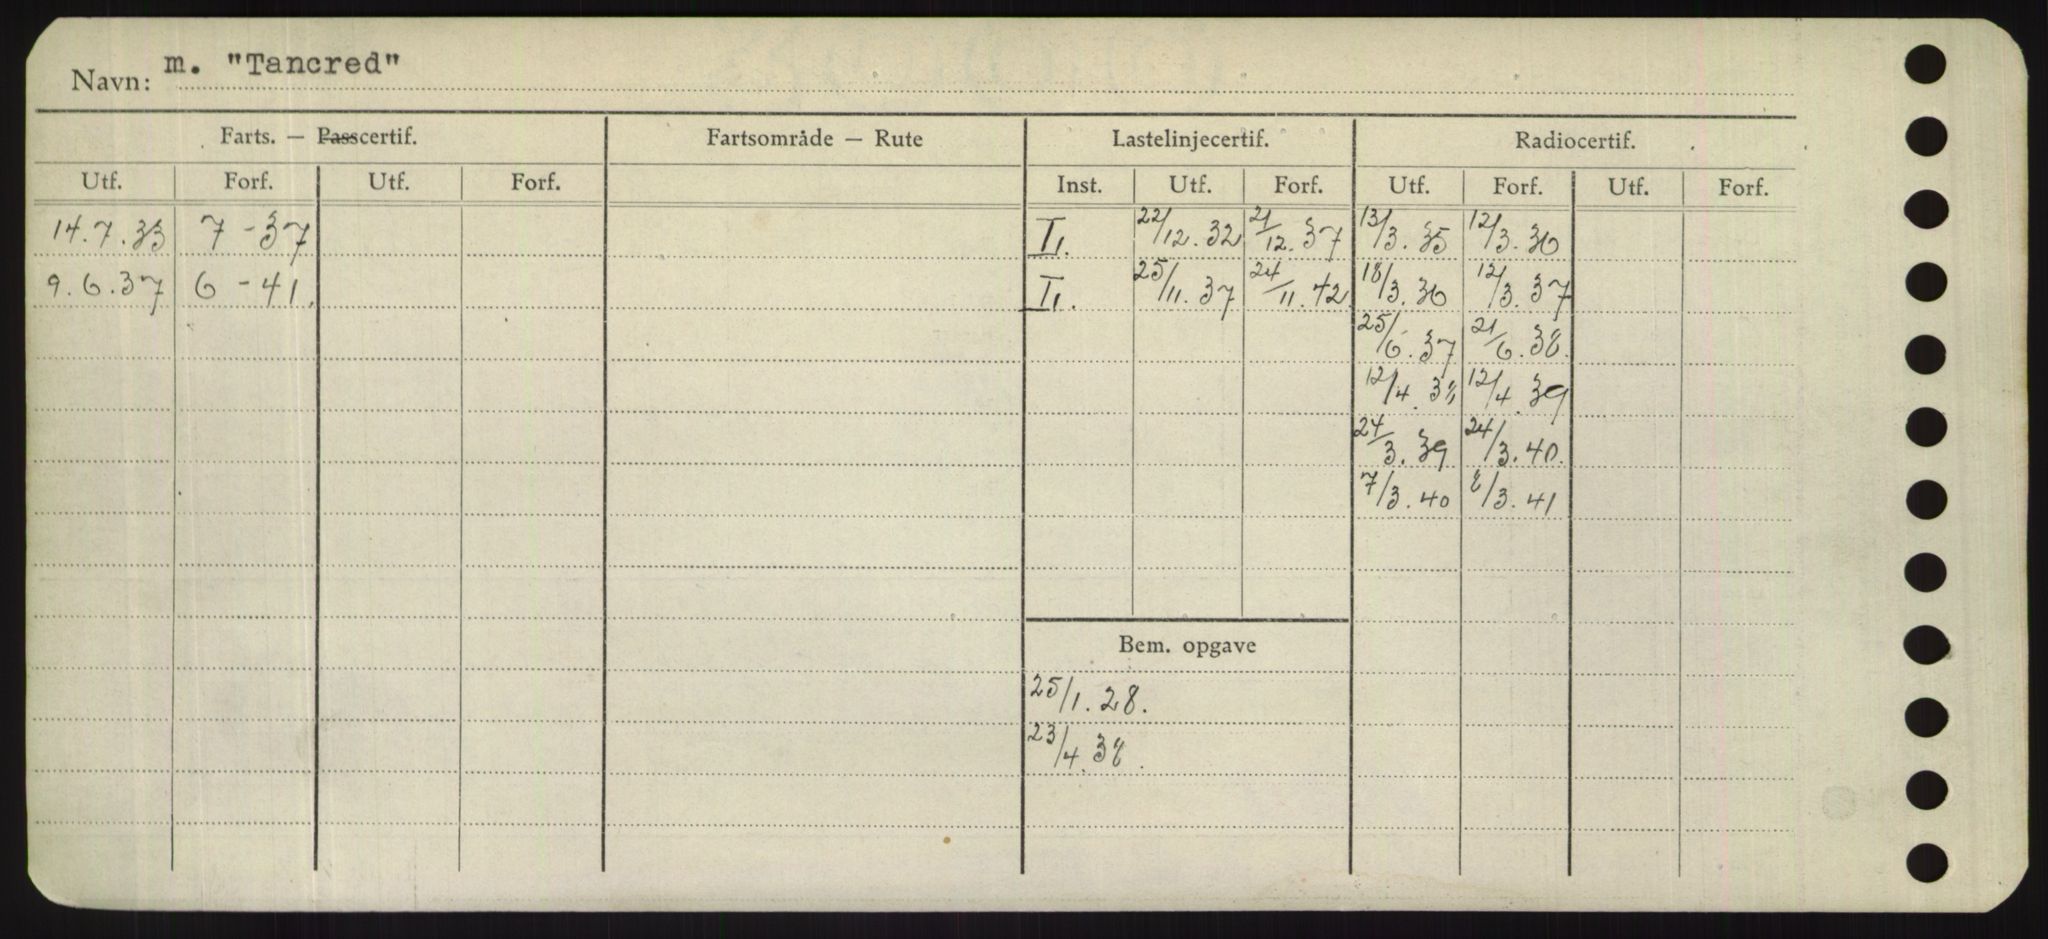 Navn: m. "Tancred"
Farts. — Passcertif. Fartsområde — Rute Lastelinjecertif. Radiocertif.
Utf. Forf. Utf. Forf. Inst. Utf. Forf. Utf. Forf. Utf. Forf.
14.7.33 7-37 II. 22/12.32 21/12.37 13/3.35 12/3.36
9.6.37 6-41. II. 25/11.37 24/11.42 18/3.36 12/3.37
25/6.37 21/6.38.
12/4.38 12/4.39
24/3.39 24/3.40.
7/3.40 8/3.41
Bem. opgave
25/1.28.
23/4.38.